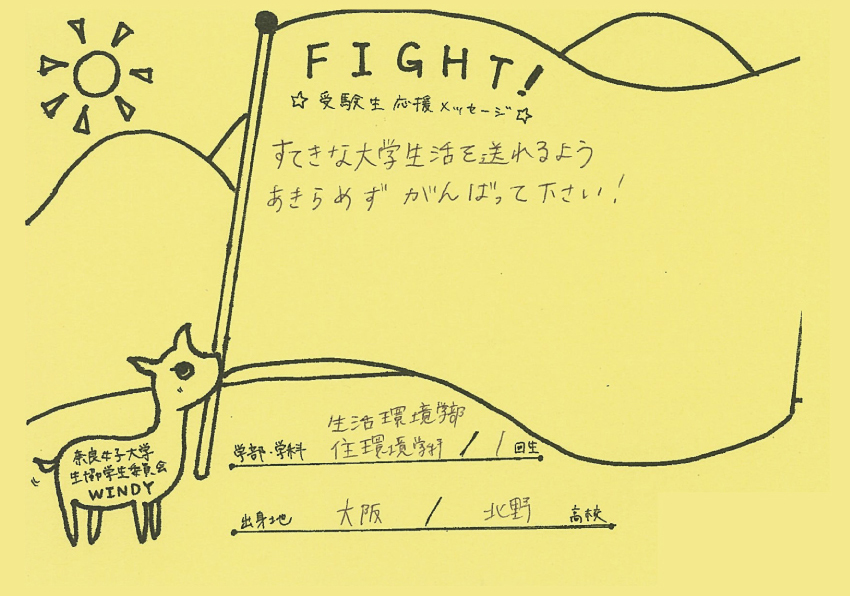 FIGHT!
☆受験生 応援 メッセージ☆
すてきな大学生活を送れるよう
あきらめず がんばって下さい!
生活環境学部
学部・学科 住環境学科 / 1 回生
出身地 大阪 / 北野 高校
奈良女子大学
生協学生委員会
WINDY